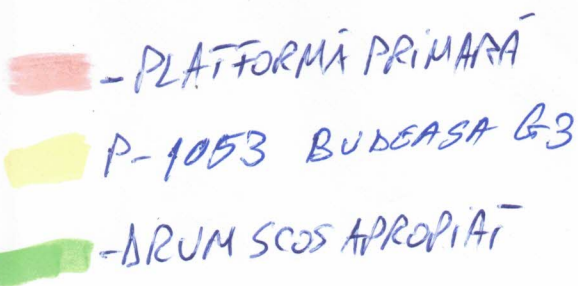 - PLATFORMĂ PRIMARĂ
P-1053 BUDEASA G3
-DRUM SCOS APROPIAT